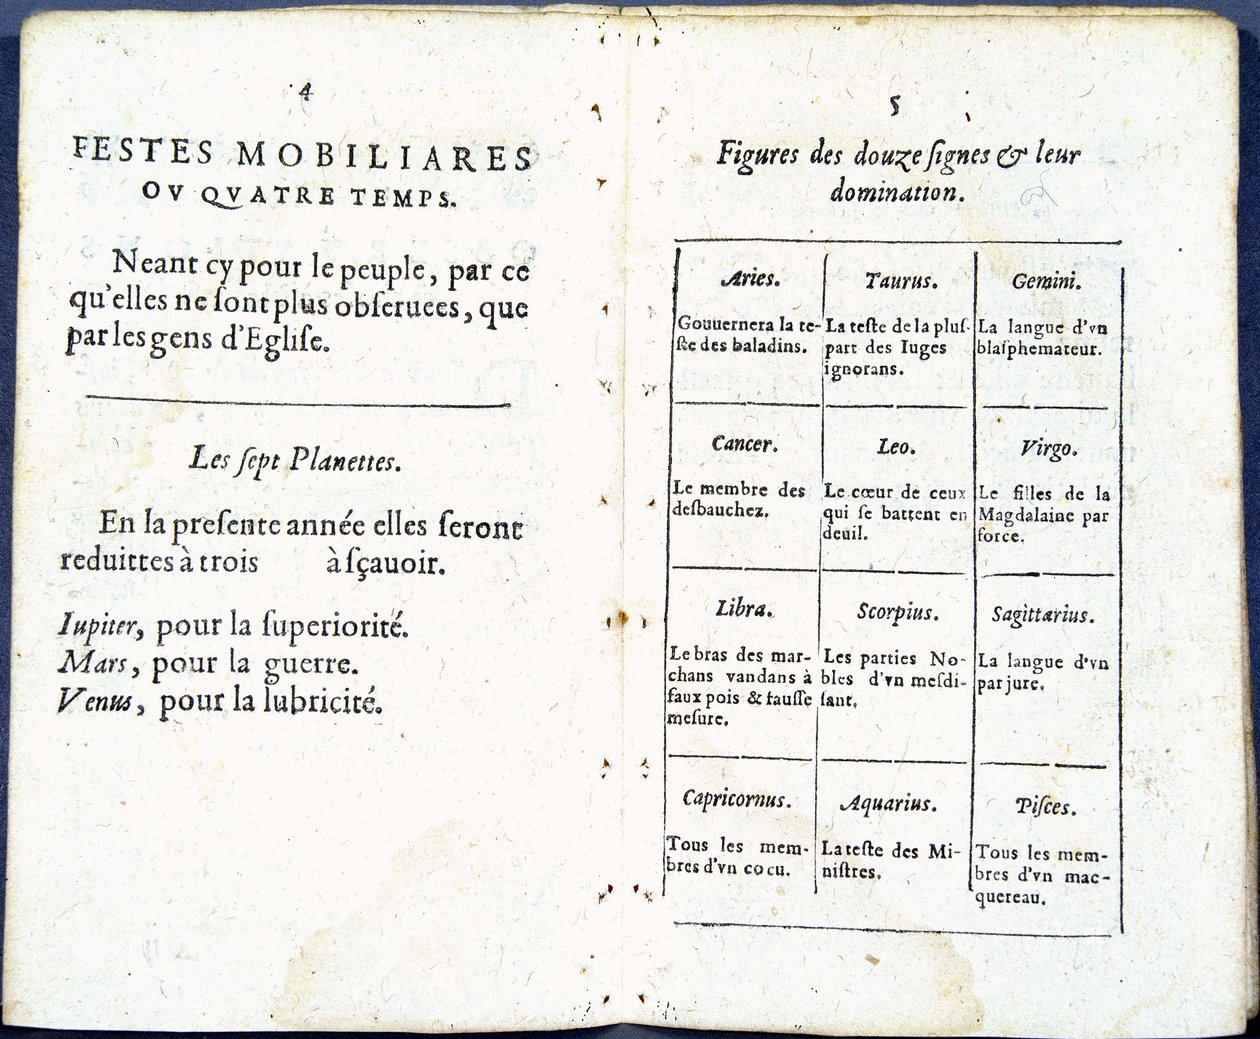 4
FESTES MOBILIARES
OV QVATRE TEMPS.
Neant cy pour le peuple, par ce
qu'elles ne ſont plus obſeruees, que
par les gens d'Egliſe.
Les ſept Planettes.
En la preſente année elles ſeront
reduittes à trois à ſçauoir.
Iupiter, pour la ſuperiorité.
Mars, pour la guerre.
Venus, pour la lubricité.
5
Figures des douze ſignes & leur
domination.
Aries.
Gouuernera la te-
ſte des baladins.
Taurus.
La teſte de la pluſ-
part des Iuges
ignorans.
Gemini.
La langue d'vn
blaſphemateur.
Cancer.
Le membre des
deſbauchez.
Leo.
Le cœur de ceux
qui ſe battent en
deuil.
Virgo.
Le filles de la
Magdalaine par
force.
Libra.
Le bras des mar-
chans vandans à
faux pois & fauſſe
meſure.
Scorpius.
Les parties No-
bles d'vn meſdi-
ſant.
Sagittarius.
La langue d'vn
parjure.
Capricornus.
Tous les mem-
bres d'vn cocu.
Aquarius.
La teſte des Mi-
niſtres.
Piſces.
Tous les mem-
bres d'vn mac-
quereau.